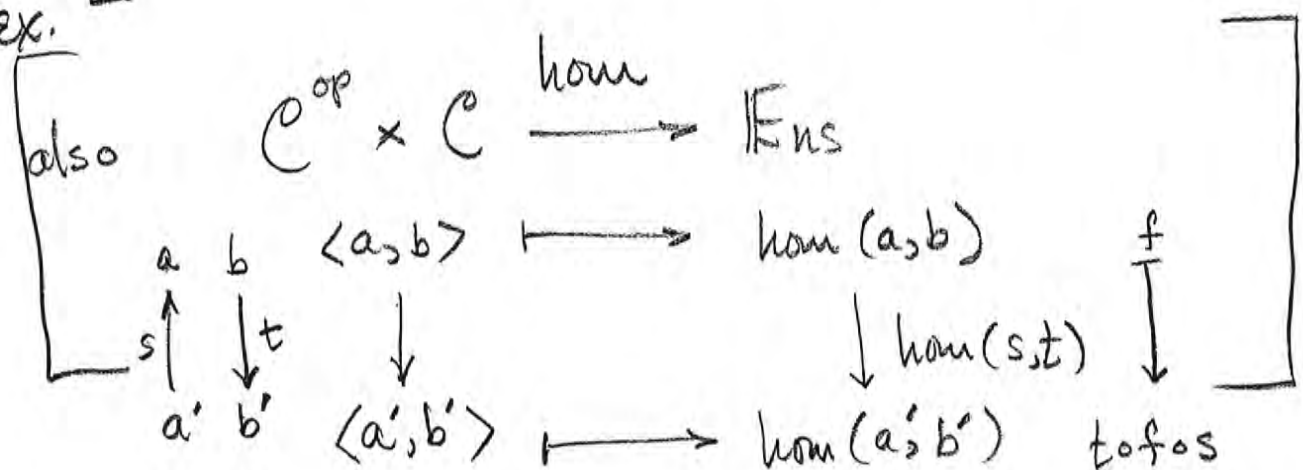 ex.
also C^op × C —hom→ Ens
a b <a,b> ↦ hom(a,b) f
s ↑ ↓ t ↓ ↓ hom(s,t) ↧
a' b' <a',b'> ↦ hom(a',b') t∘f∘s